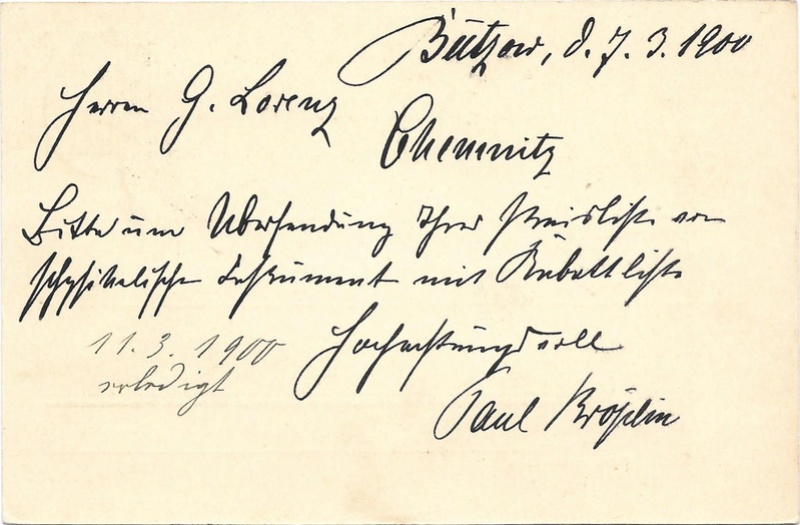 Bützow, d. 7. 3. 1900
Herrn G. Lorenz
Chemnitz
Bitte um Übersendung Ihrer Preisliste von
physikalische Instrument mit Rabattliste
Hochachtungsvoll
11. 3. 1900
erledigt
Paul